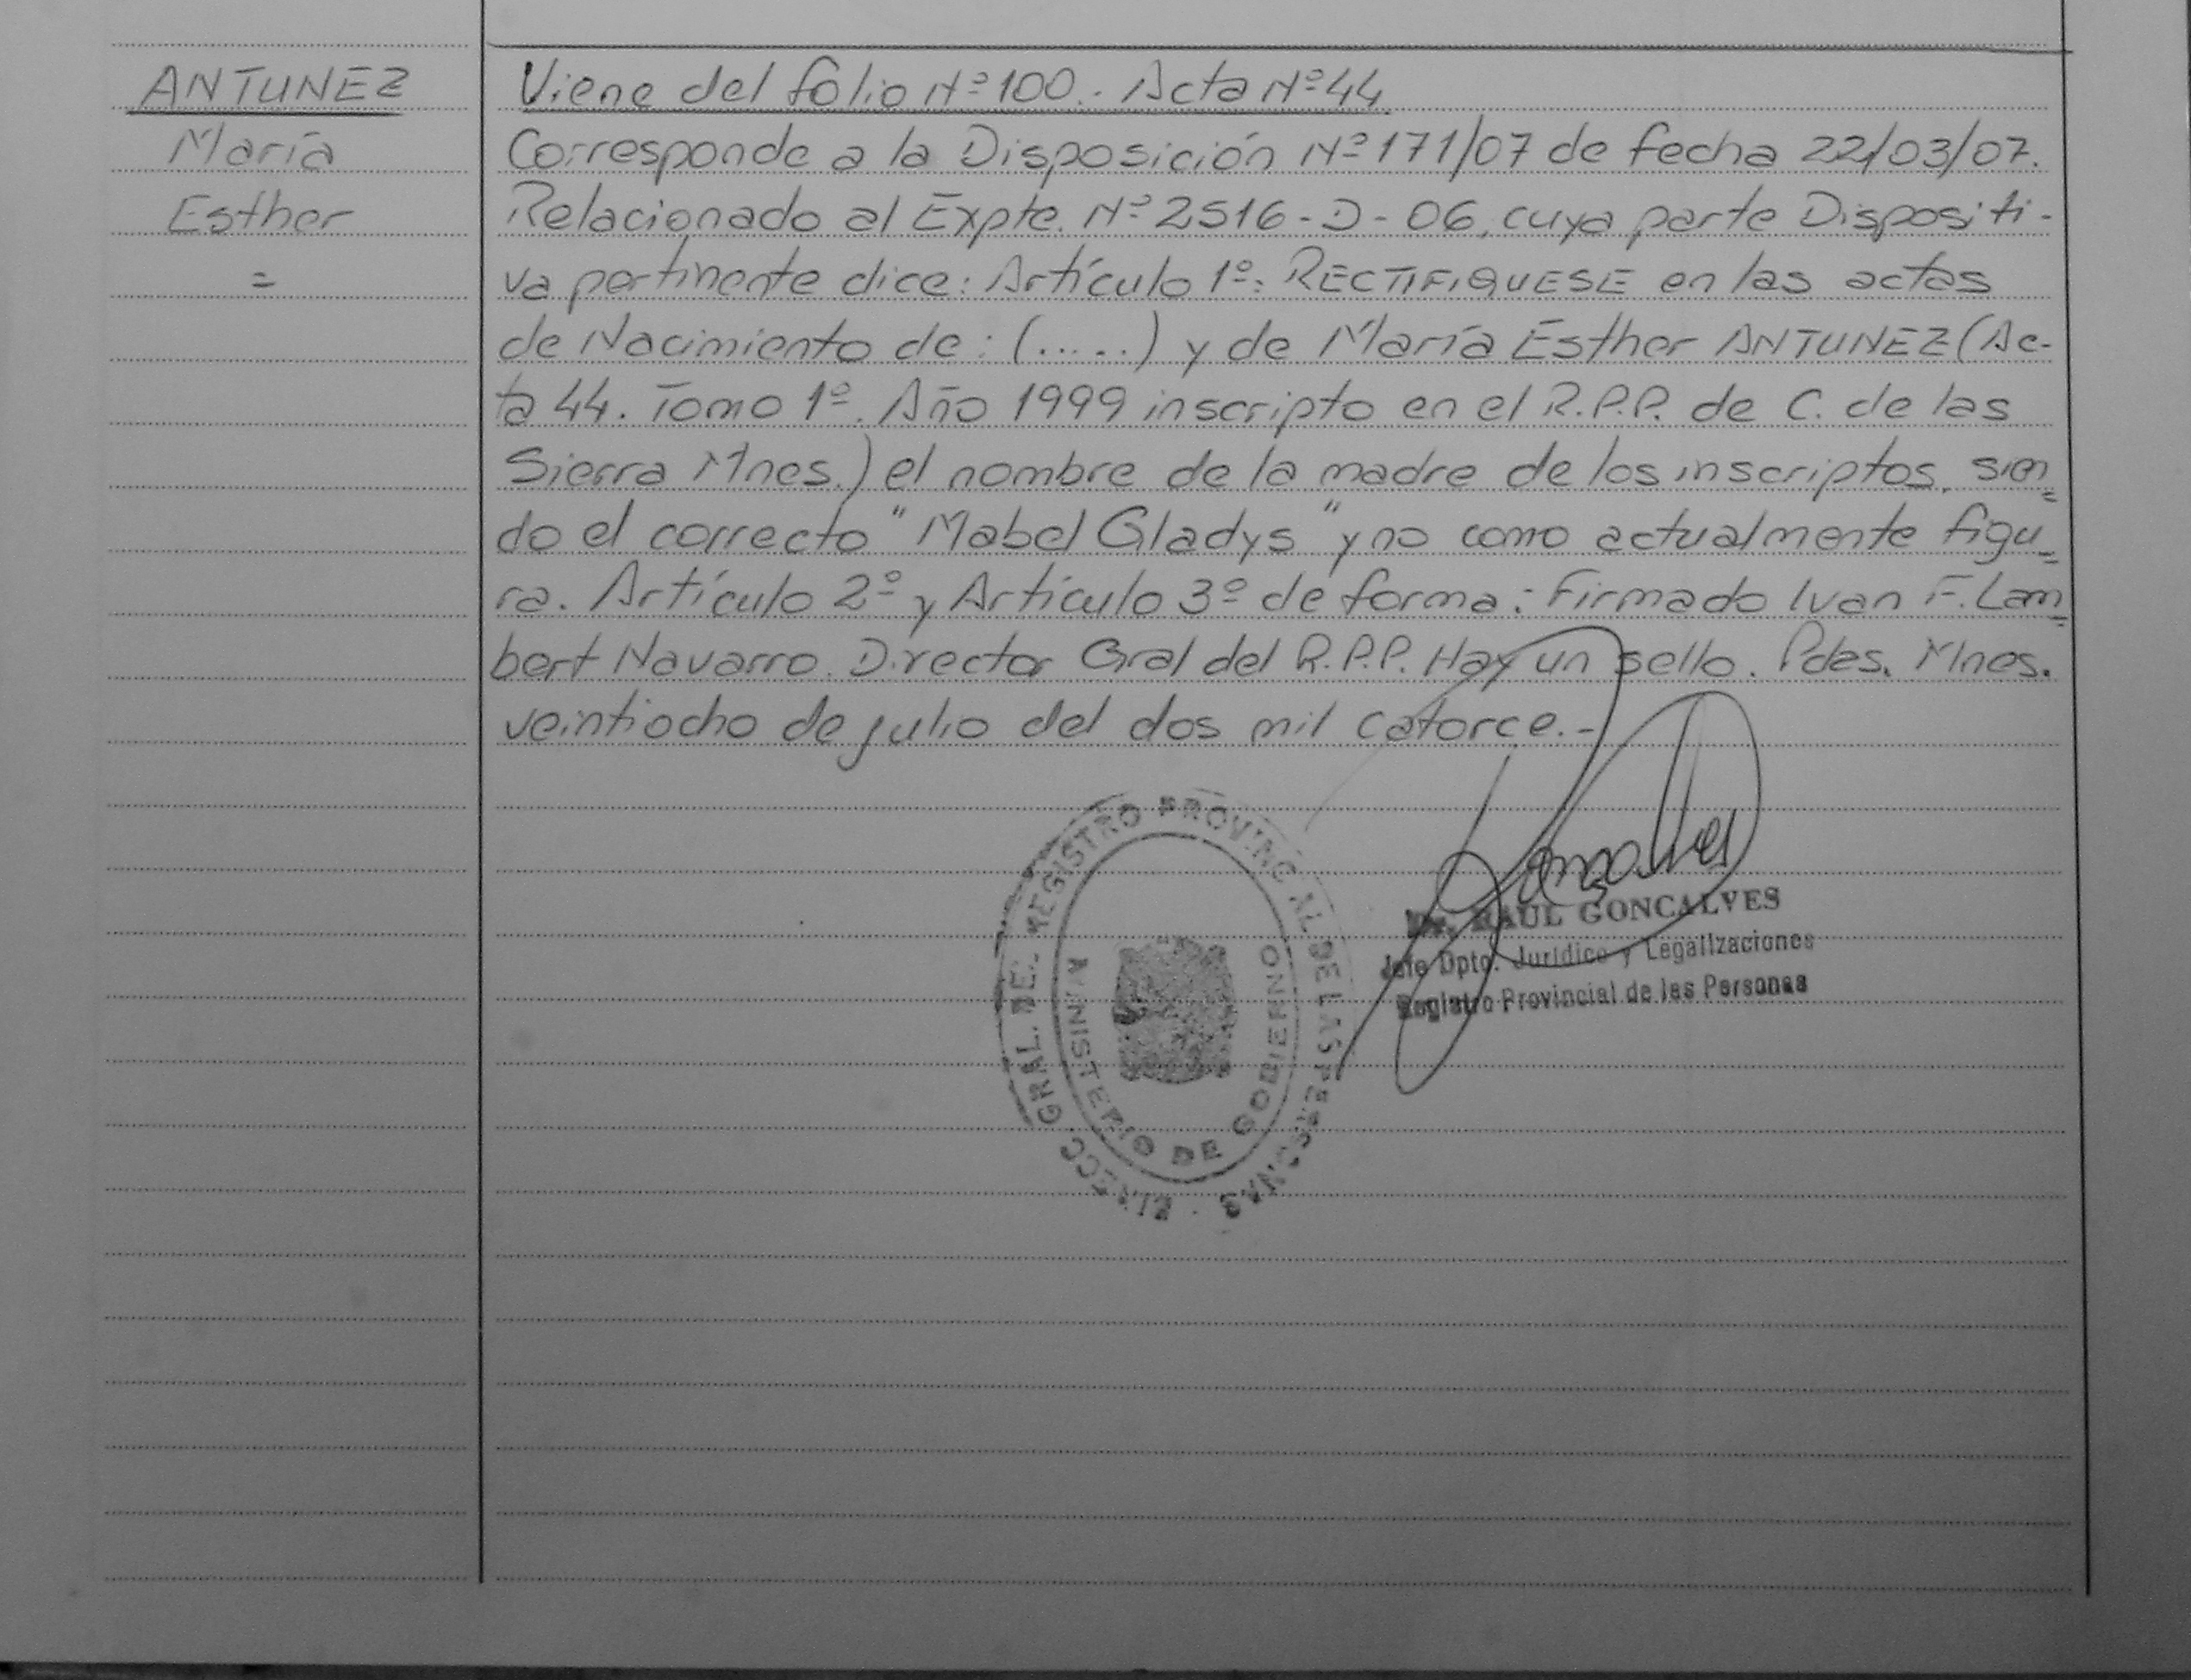 ANTUNEZ
María
Esther
=
Viene del folio Nº 100.- Acta Nº 44
Corresponde a la Disposición Nº 171/07 de fecha 22/03/07.
Relacionado al Expte. Nº 2516-D-06, cuya parte Dispositi-
va pertinente dice: Artículo 1º: RECTIFIQUESE en las actas
de Nacimiento de: (.....) y de María Esther ANTUNEZ (Ac-
ta 44. Tomo 1º. Año 1999 inscripto en el R.P.P. de C. de las
Sierra Mnes.) el nombre de la madre de los inscriptos, sien=
do el correcto "Mabel Gladys" y no como actualmente figu=
ra. Artículo 2º y Artículo 3º de forma: Firmado Ivan F. Lam=
bert Navarro. Director Gral del R.P.P. Hay un sello. Pdas. Mnes.
veintiocho de julio del dos mil catorce.-
DIRECC GRAL. DEL REGISTRO PROVINCIAL DE LAS PERSONAS
MINISTERIO DE GOBIERNO
Dr. RAUL GONCALVES
Jefe Dpto. Jurídico y Legalizaciones
Registro Provincial de las Personas